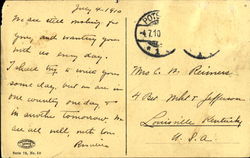 July 4-1910
We are still looking for
you, and wanting you
with us every day.
I shall try to write you
some day, but we are in
one country one day &
in another tomorrow. We
are all well, with love
4.7.10
Mrs C. M. Reimers
4 Bet Mkt & Jefferson
Louisville Kentucky
U. S. A.